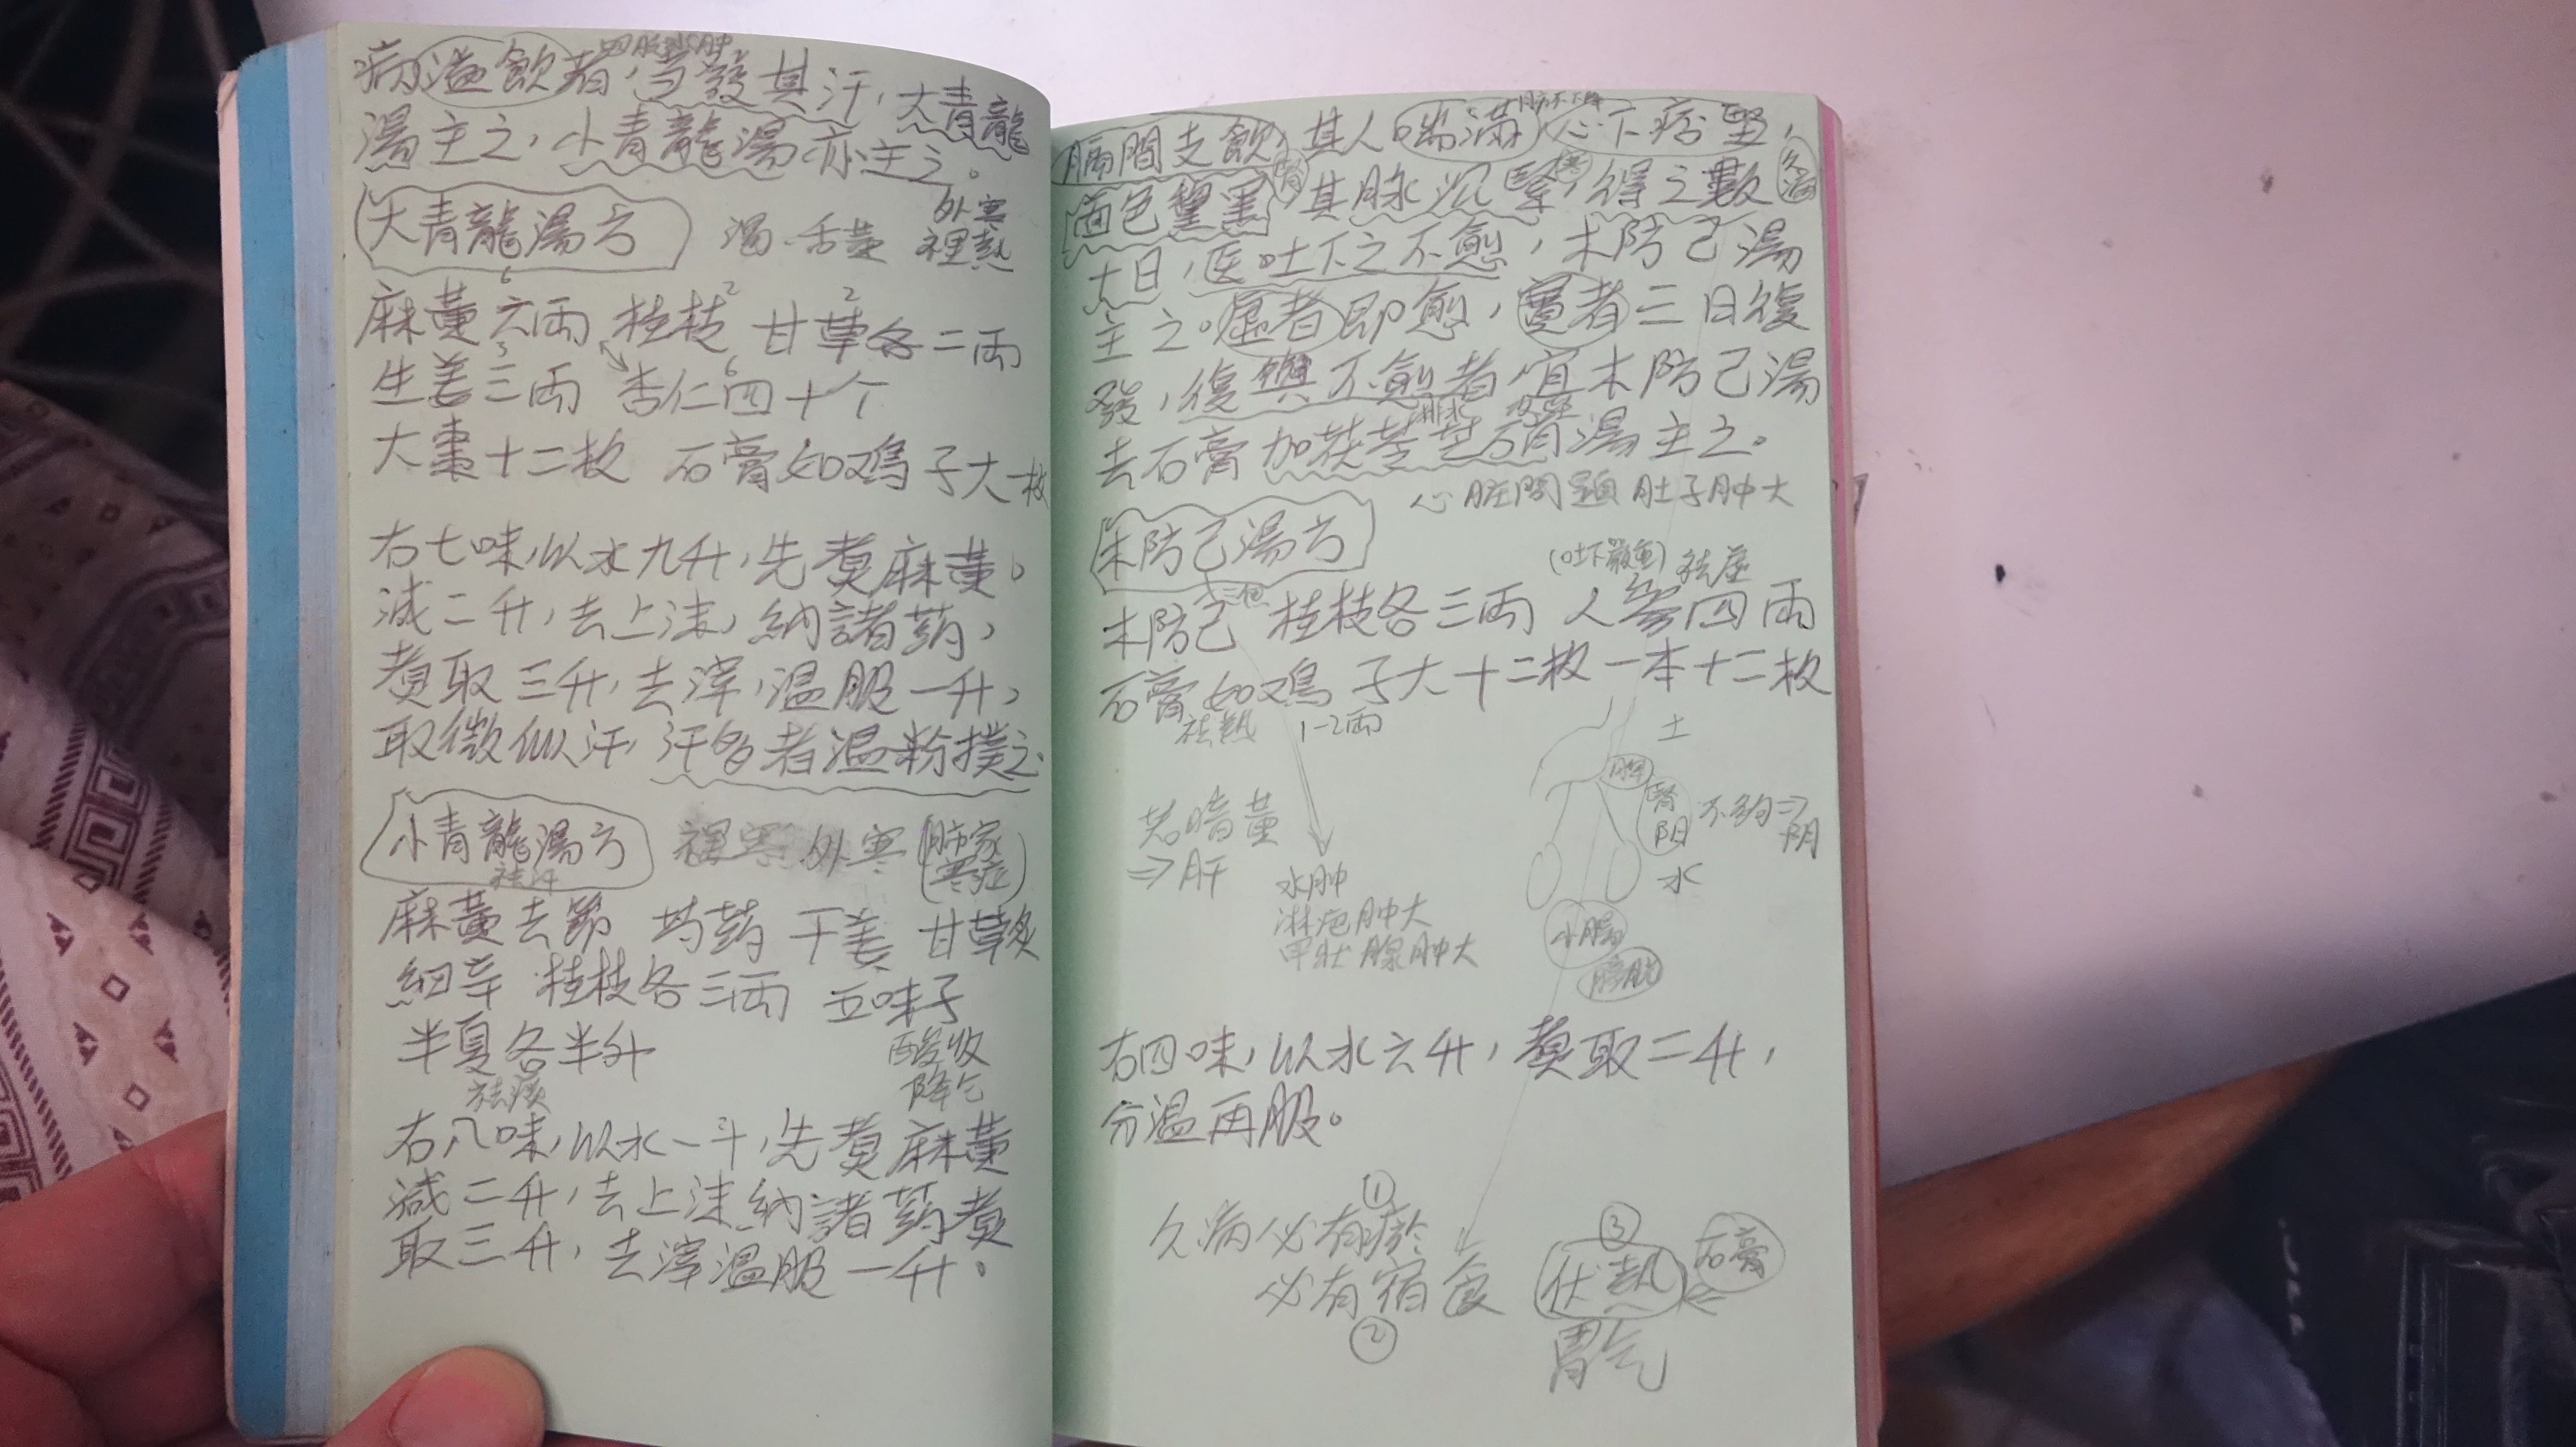 四肢水肿
病溢飲者，当發其汗，大青龍
湯主之，小青龍湯亦主之。
大青龍湯方
渴
外寒
裡熱
6 2 2
麻黃六両 桂枝 甘草各二両
3 6
生姜三両 杏仁四十个
大棗十二枚 石膏如鸡子大一枚
右七味，以水九升，先煑麻黃。
減二升，去上沫，納諸药，
煑取三升，去滓，温服一升，
取微似汗，汗多者温粉撲之。
小青龍湯方 裡寒 外寒
肺家
寒症
祛汗
麻黃去節 芍药 干姜 甘草炙
細辛 桂枝各三両 五味子
半夏各半升
祛痰
酸收
降气
右八味，以水一斗，先煑麻黃
減二升，去上沫納諸药煑
取三升，去滓温服一升。
膈間支飲，其人喘滿，心下痞堅，
面色黧黑，其脉沉緊，得之數
腎
寒
久病
十日，医吐下之不愈，木防己湯
主之。虛者即愈，實者三日復
發，復與不愈者，宜木防己湯
排水 攻堅
去石膏加茯苓芒硝湯主之。
心脏問題 肚子肿大
木防己湯方
(吐下嚴重) 祛虛
木防己 桂枝各三両 人參四両
石膏如鸡子大十二枚一本十二枚
祛熱 1-2両
土
脾
腎
阳
不夠⇒
阴
水
小腸
膀胱
若暗黃
⇒肝
水肿
淋疤肿大
甲壯腺肿大
右四味，以水六升，煑取二升，
分温再服。
①
久病必有瘀
必有宿食
②
③
伏熱
石膏
胃气